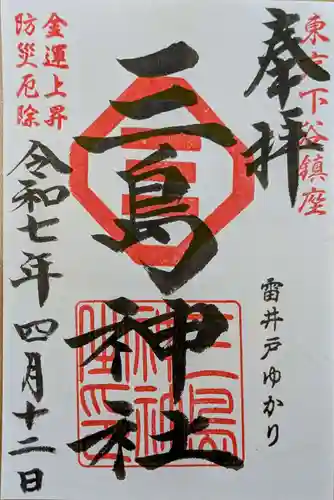 奉拝
東京下谷鎮座
雷井戸ゆかり
三島神社
三島神社之印
金運上昇
防災厄除
令和七年四月十二日